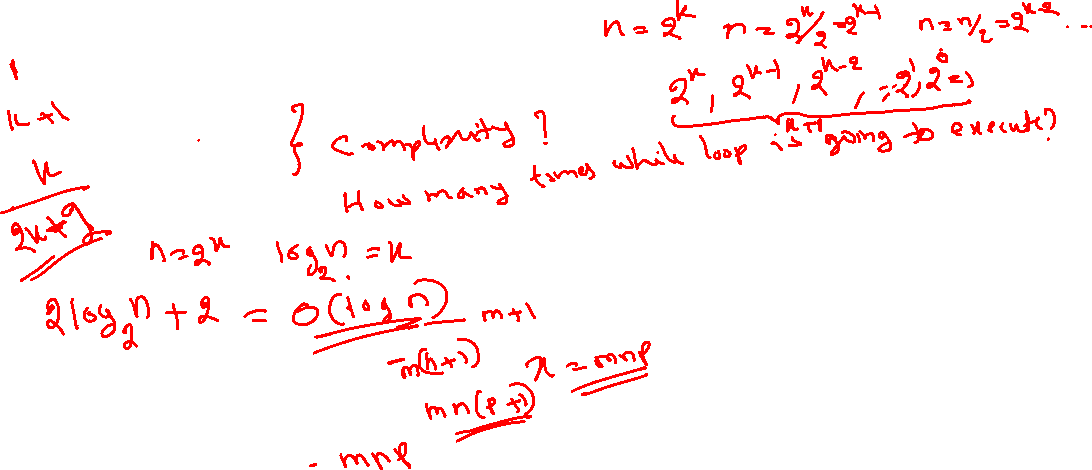 n = 2^k n = 2^k/2 = 2^k-1 n = n/2 = 2^k-2 ...
2^k, 2^k-1, 2^k-2, --- 2^1, 2^0 = 1
k+1
1
k+1
k
2k+2
} Complexity?
How many times while loop is going to execute?
n = 2^k log_2 n = k
2 log_2 n + 2 = O(log n)
m+1
m(n+1)
mn(p+1)
mnp
x = mnp